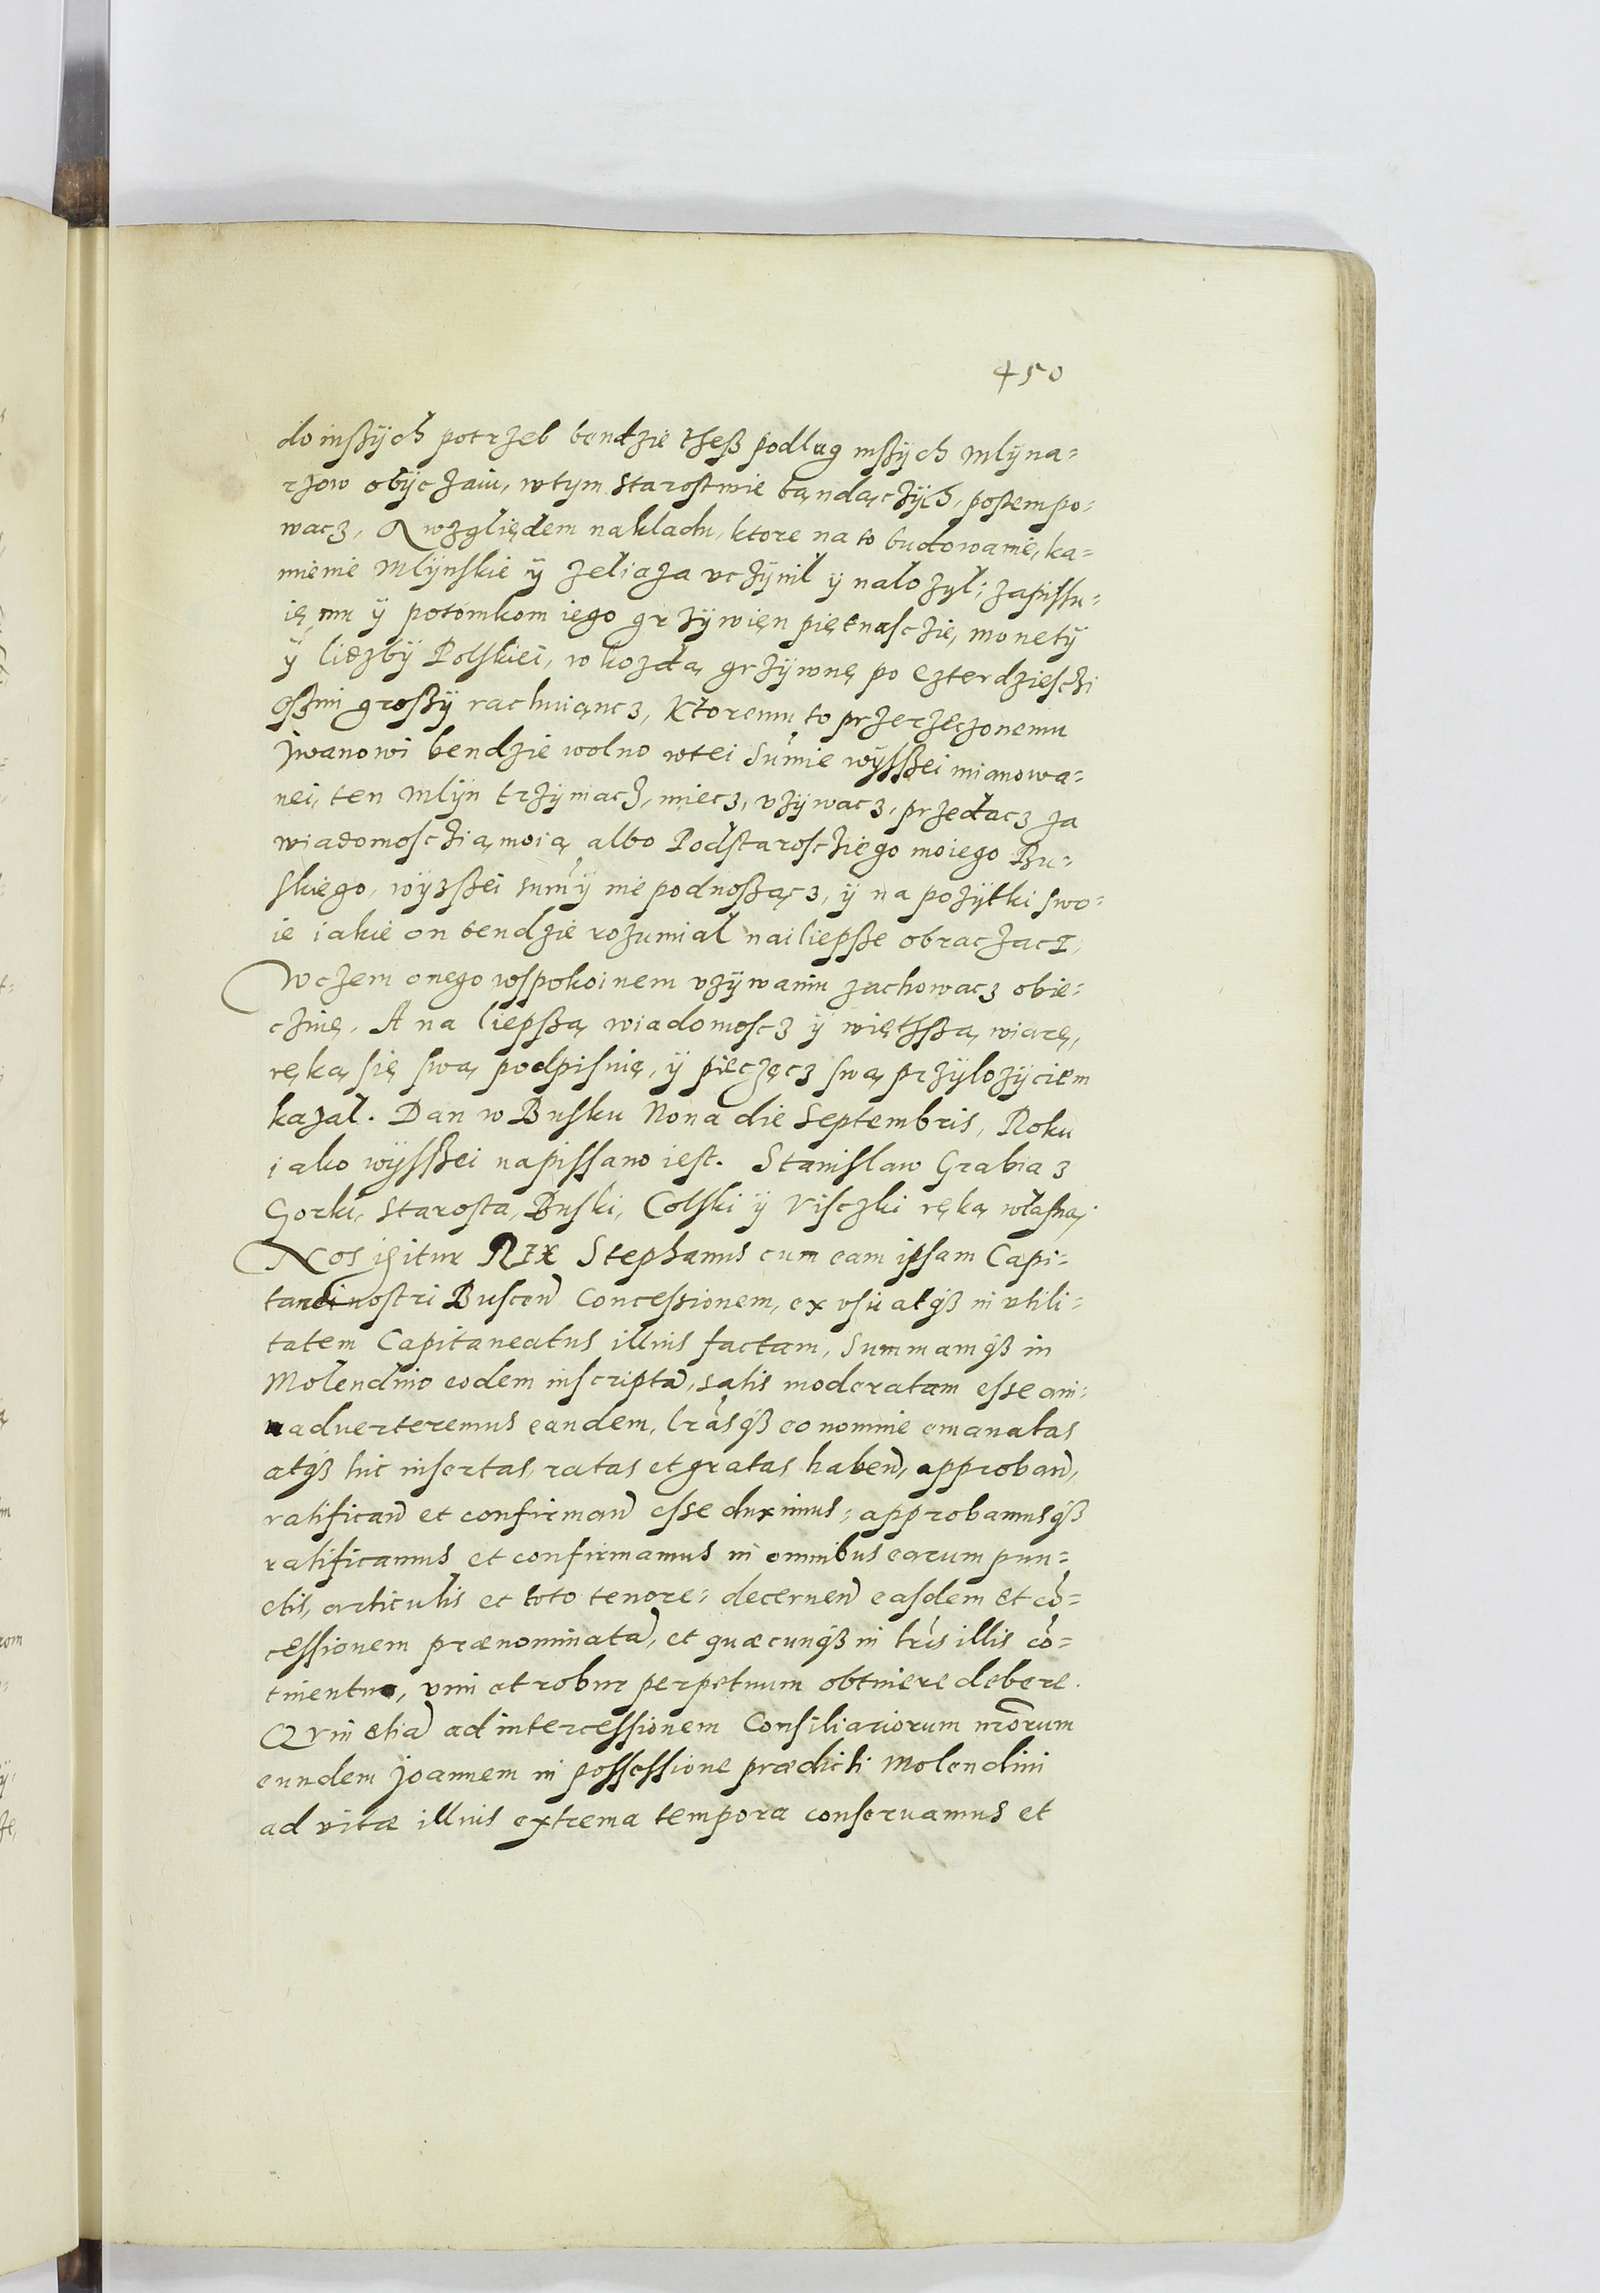 450
do inßÿch potrzeb bendzie theß podlug inßÿch Mlÿna=
rzow obÿczaiu, w tym Starostwie bąndączÿch, postempo=
wacz, A względem nakladu, ktore na to budowanie, ka=
mienie Mlÿnskie ÿ zeliaza vczÿnil ÿ nalozÿl; zapissu=
ię mu ÿ potomkom iego grzÿwien piętnasczie, monetÿ
ÿ liczbÿ Polskiei, w kozdą grzÿwnę po czterdziesczi
oßmi großÿ rachuiąncz, Ktoremu to przerzeczonemu
Jwanowi bendzie wolno w tei Sum̃ie wÿsßei mianowa=
nei, ten Mlÿn trzÿmacz, miecz, vzÿwacz, przedacz za
wiadomoscżią moią albo Podstaroscziego moiego Bu=
skiego, wÿzßei sum̃ÿ nie podnoßącz, ÿ na pozÿtki swo=
ie iakie on bendzie rozumial nailiepße obraczacz,
W czem onego w spokoinem vzÿwaniu zachowacz obie=
czuię. A na liepßą wiadomoscz ÿ więthßą wiarę,
ręką się swą podpisuię, ÿ pieczęcz swą przÿlozÿciem
kazal. Dan w Busku Nona die Septembris, Roku
iako wÿsßei napissano iest. Stanislaw Grabia z
Gorki, Starosta, Buski, Colski ÿ Visczki ręką wlasną.
Nos igitur REX Stephanus cum eam ipsam Capi=
tanei nostri Buscen̄ Concessionem, ex vsu atqꝫ in vtili=
tatem Capitaneatus illius factam, Summamqꝫ in
Molendino eodem inscriptā, satis moderatam esse ani=
maduerteremus eandem, lr̃asqꝫ eo nomine emanatas
atqꝫ hic insertas, ratas et gratas haben̄, approban̄,
ratifican̄ et confirman̄ esse duximus, approbamusqꝫ
ratificamus et confirmamus in omnibus earum pun=
ctis, articulis et toto tenore, decernen̄ easdem et cō=
cessionem prænominatā, et quæcunqꝫ in lr̃is illis cō=
tinentur, vim et robur perpetuum obtinere debere.
Qvin etiā ad intercessionem Consiliariorum nr̃orum
eundem Joannem in possessione prædicti Molendini
ad vitæ illius extrema tempora conseruamus et